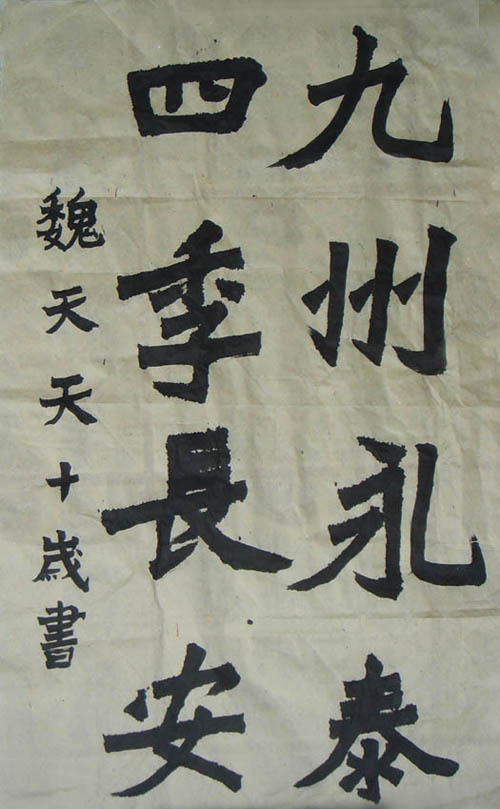 九州永泰
四季長安
魏天天十歲書